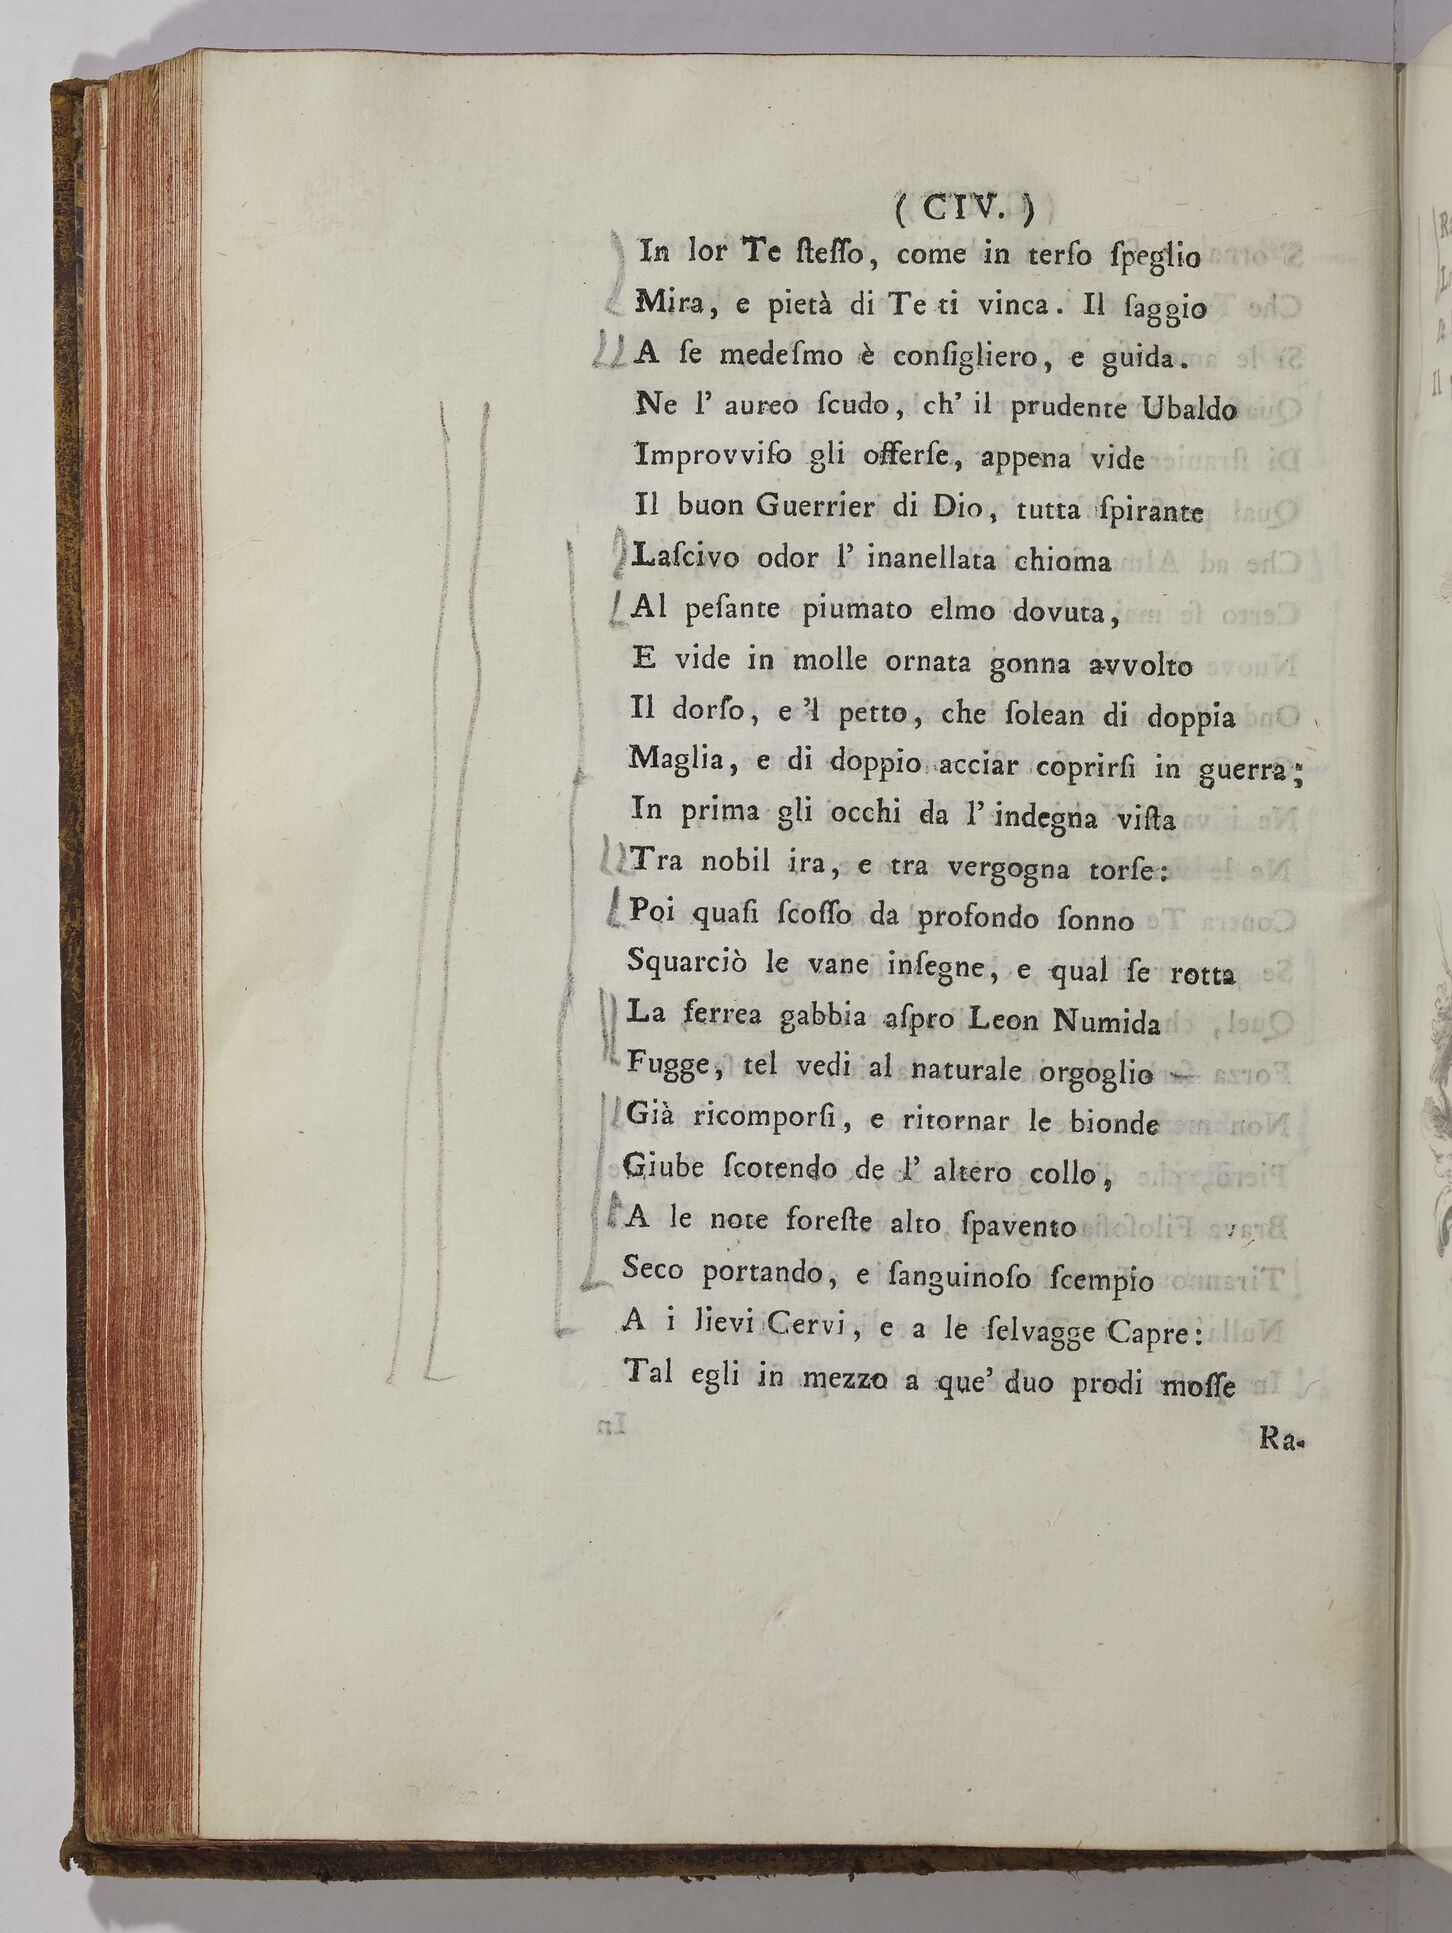 ( CIV. )
In lor Te ſteſſo, come in terſo ſpeglio
Mira, e pietà di Te ti vinca. Il ſaggio
A ſe medeſmo è conſigliero, e guida.
Ne l' aureo ſcudo, ch' il prudente Ubaldo
Improvviſo gli offerſe, appena vide
Il buon Guerrier di Dio, tutta ſpirante
Laſcivo odor l' inanellata chioma
Al peſante piumato elmo dovuta,
E vide in molle ornata gonna avvolto
Il dorſo, e 'l petto, che ſolean di doppia
Maglia, e di doppio acciar coprirſi in guerra;
In prima gli occhi da l' indegna viſta
Tra nobil ira, e tra vergogna torſe:
Poi quaſi ſcoſſo da profondo ſonno
Squarciò le vane inſegne, e qual ſe rotta
La ferrea gabbia aſpro Leon Numida
Fugge, tel vedi al naturale orgoglio
Già ricomporſi, e ritornar le bionde
Giube ſcotendo de l' altero collo,
A le note foreſte alto ſpavento
Seco portando, e ſanguinoſo ſcempio
A i lievi Cervi, e a le ſelvagge Capre:
Tal egli in mezzo a que' duo prodi moſſe
Ra-